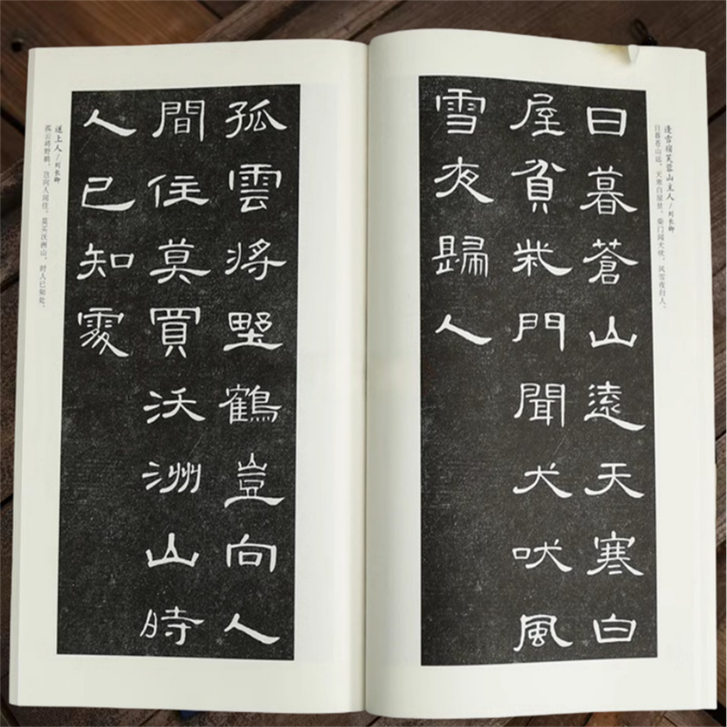 逢雪宿芙蓉山主人/刘长卿
日暮苍山远,天寒白屋贫。柴门闻犬吠,风雪夜归人。
日暮蒼山遠天寒白
屋貧柴門聞犬吠風
雪夜歸人
送上人/刘长卿
孤云将野鹤,岂向人间住。莫买沃洲山,时人已知处。
孤雲將野鶴豈向人
間住莫買沃洲山時
人已知處